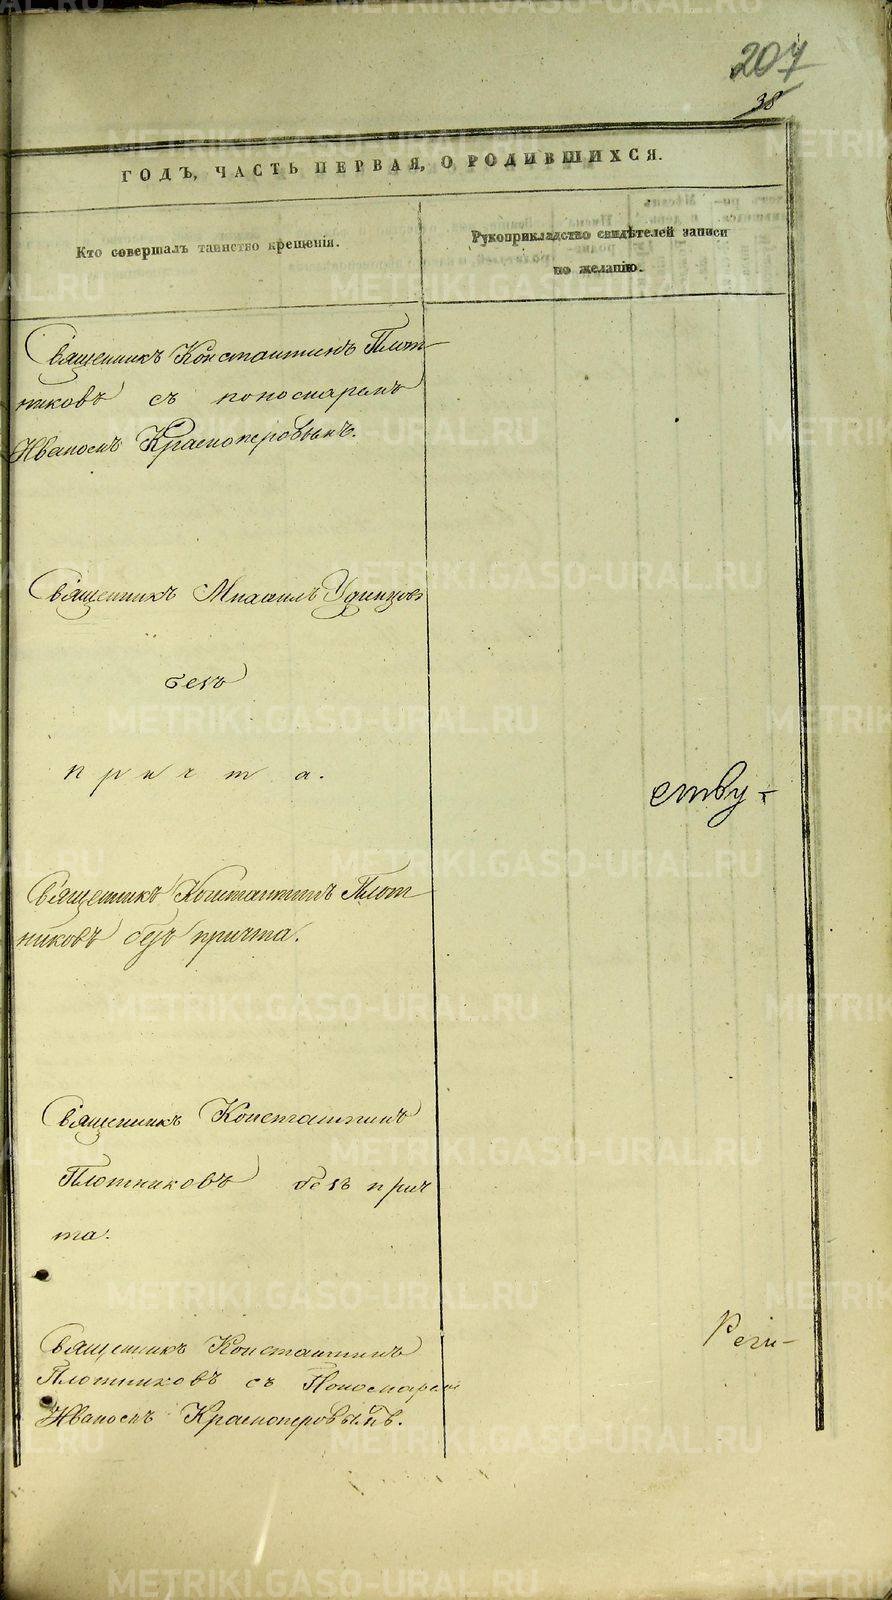 207
38
ГОДЪ, ЧАСТЬ ПЕРВАЯ, О РОДИВШИХСЯ.
Кто совершалъ таинство крещенія.
Рукоприкладство свидѣтелей записи
по желанію.
Священникъ Константинъ Плот-
никовъ съ пономаремъ
Иваномъ Красноперовымъ.
Священникъ Михаилъ Удинцовъ
безъ
причта.
ству-
Священникъ Константинъ Плот-
никовъ безъ причта.
Священникъ Константинъ
Плотниковъ безъ прич
та.
Реги-
Священникъ Константинъ
Плотниковъ съ Пономаремъ
Иваномъ Красноперовымъ.
METRIKI.GASO-URAL.RU